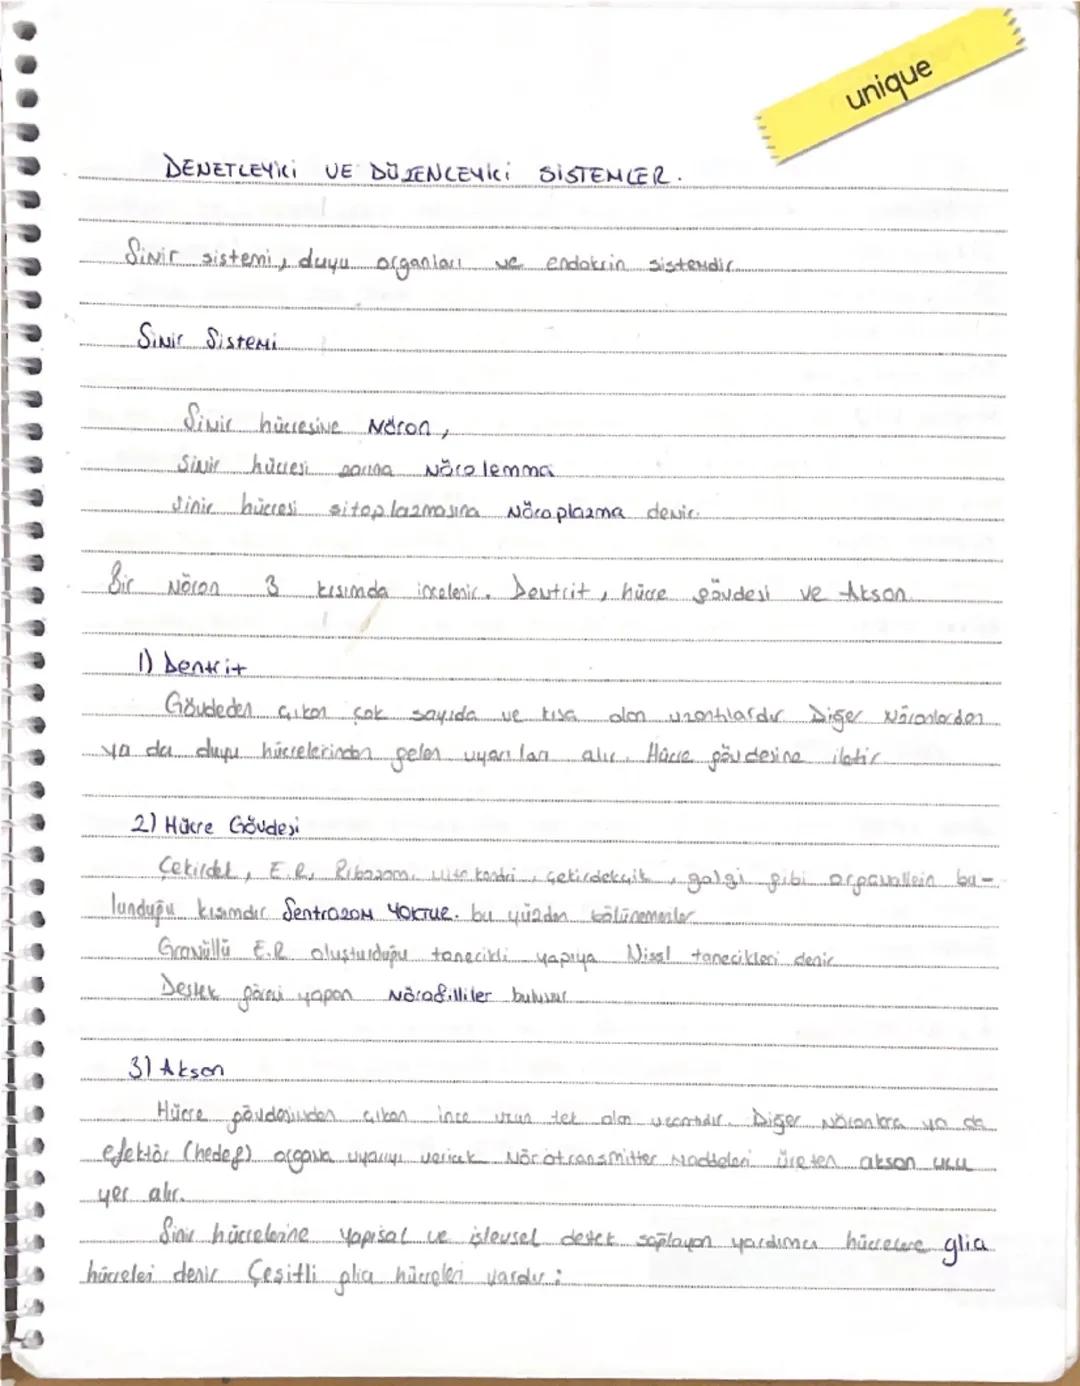 unique
DENETLEYİCİ VE DÜZENLEYİCİ SİSTEMLER.
Sinir sistemi, duyu organları ve endokrin sistemdir.
Sinir Sistemi
Sinir hücresine Nöron,
Sinir hücresi zarına Nörolemma
Sinir hücresi sitoplazmasına Nöroplazma denir.
Bir Nöron 3 kısımda incelenir. Dentrit, hücre gövdesi ve Akson.
1) Dentrit
Gövdeden çıkan çok sayıda ve kısa olan uzantılardır Diğer Nöronlardan
ya da duyu hücrelerinden gelen uyarıları alır. Hücre gövdesine iletir.
2) Hücre Gövdesi
Çekirdek, E.R, Ribozom, Mitokondri, çekirdekçik, golgi gibi organellerin bu-
lunduğu kısımdır. Sentrozom YOKTUR. bu yüzden bölünemezler
Granüllü E.R oluşturduğu tanecikli yapıya Nissl tanecikleri denir
Destek görevi yapan Nörofilliler bulunur.
3) Akson
Hücre gövdesinden çıkan ince uzun tek olan uzantıdır. Diğer Nöronlara ya da
efektör (hedef) organa uyarıyı vericek Nörotransmitter Maddeleri üreten akson ucu
yer alır.
Sinir hücrelerine yapısal ve işlevsel destek sağlayan yardımcı hücrelere glia
hücreleri denir Çeşitli glia hücreleri vardır: